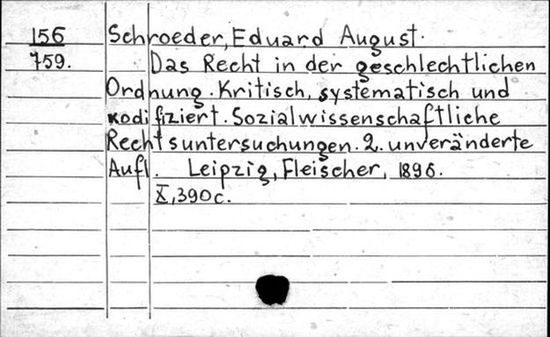 156
759.
Schroeder, Eduard August.
Das Recht in der geschlechtlichen
Ordnung. Kritisch, systematisch und
kodifiziert. Sozialwissenschaftliche
Rechtsuntersuchungen. 2. unveränderte
Aufl. Leipzig, Fleischer, 1896.
X, 390 c.